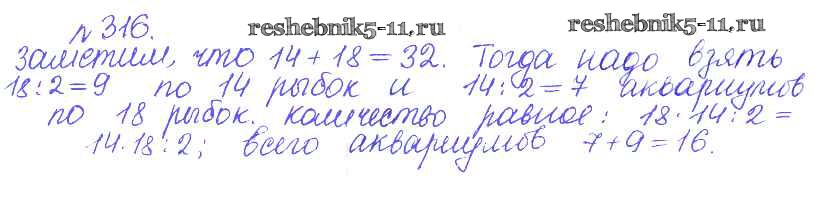 № 316. reshebnik5-11.ru reshebnik5-11.ru
Заметим, что 14 + 18 = 32. Тогда надо взять
18 : 2 = 9 по 14 рыбок и 14 : 2 = 7 аквариумов
по 18 рыбок. Количество равное: 18 · 14 : 2 =
14 · 18 : 2; всего аквариумов 7 + 9 = 16.